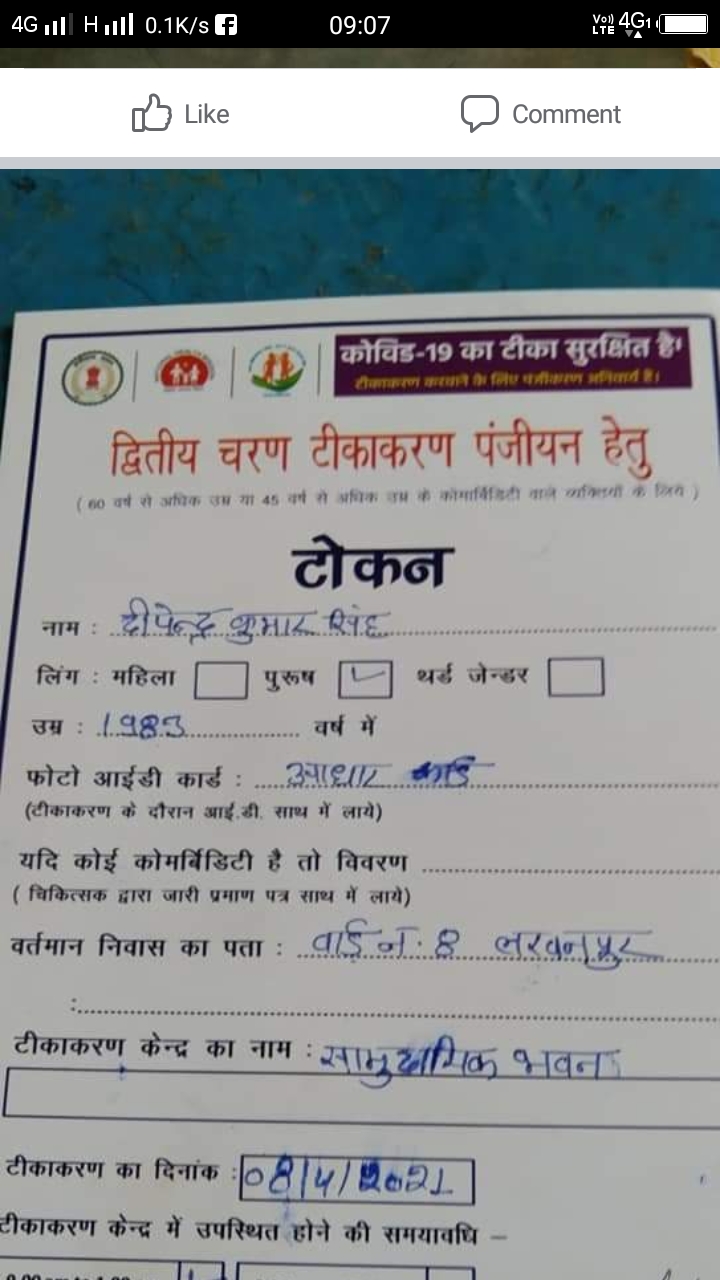 4G H 0.1K/s 09:07 Vo)) LTE 4G1
Like Comment
कोविड-19 का टीका सुरक्षित है!
टीकाकरण करवाने के लिए पंजीकरण अनिवार्य है।
द्वितीय चरण टीकाकरण पंजीयन हेतु
( 60 वर्ष से अधिक उम्र या 45 वर्ष से अधिक उम्र के कोमार्बिडिटी वाले व्यक्तियों के लिये )
टोकन
नाम : दीपेन्द्र कुमार सिंह
लिंग : महिला पुरूष थर्ड जेन्डर
उम्र : 1983 वर्ष में
फोटो आईडी कार्ड : आधार कार्ड
(टीकाकरण के दौरान आई.डी. साथ में लाये)
यदि कोई कोमर्बिडिटी है तो विवरण
( चिकित्सक द्वारा जारी प्रमाण पत्र साथ में लाये)
वर्तमान निवास का पता : वार्ड नं. 8 लखनपुर
टीकाकरण केन्द्र का नाम : सामुदायिक भवन
टीकाकरण का दिनांक : 08/4/2021
टीकाकरण केन्द्र में उपस्थित होने की समयावधि –